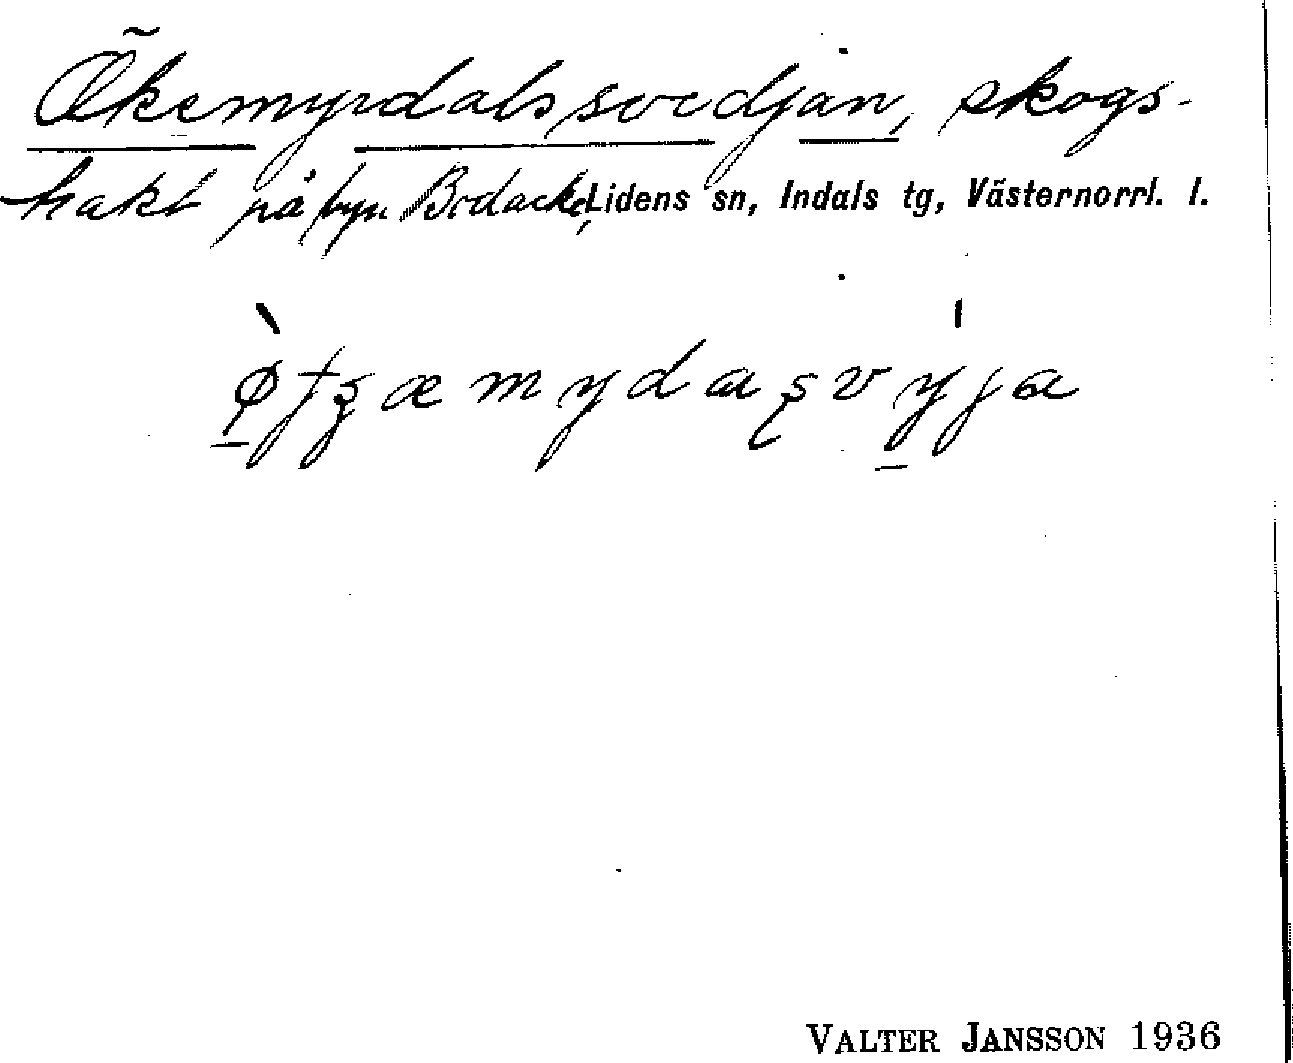 Ökemyrdalssvedjan, skogs-
trakt på byn Bodacke, Lidens sn, Indals tg, Västernorrl. l.
VALTER JANSSON 1936